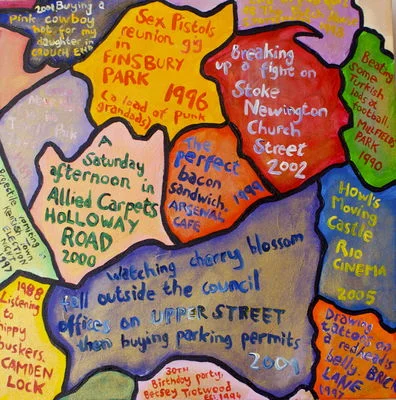 2001 Buying a
pink cowboy
hat for my
daughter in
CROUCH END
Sex Pistols
reunion gig
in
FINSBURY
PARK 1996
(a load of punk
grandads)
Breaking
up a fight on
Stoke
Newington
Church
Street
2002
Beating
some
Turkish
kids at
football
MILLFIELDS
PARK
1990
A
Saturday
afternoon in
Allied Carpets
HOLLOWAY
ROAD
2000
The
perfect
bacon
sandwich.
1999
ARSENAL
CAFE
Howl's
Moving
Castle
RIO
CINEMA
2005
Projectile vomiting in
ELECTION
NIGHT
1997
Watching cherry blossom
fall outside the council
offices on UPPER STREET
then buying parking permits
2001
1988
Listening
to
hippy
buskers.
CAMDEN
LOCK
30TH
Birthday party,
Betsey Trotwood
EC1 1994
Drawing
tattoos on
a redhead's
belly. BRICK
LANE
1997